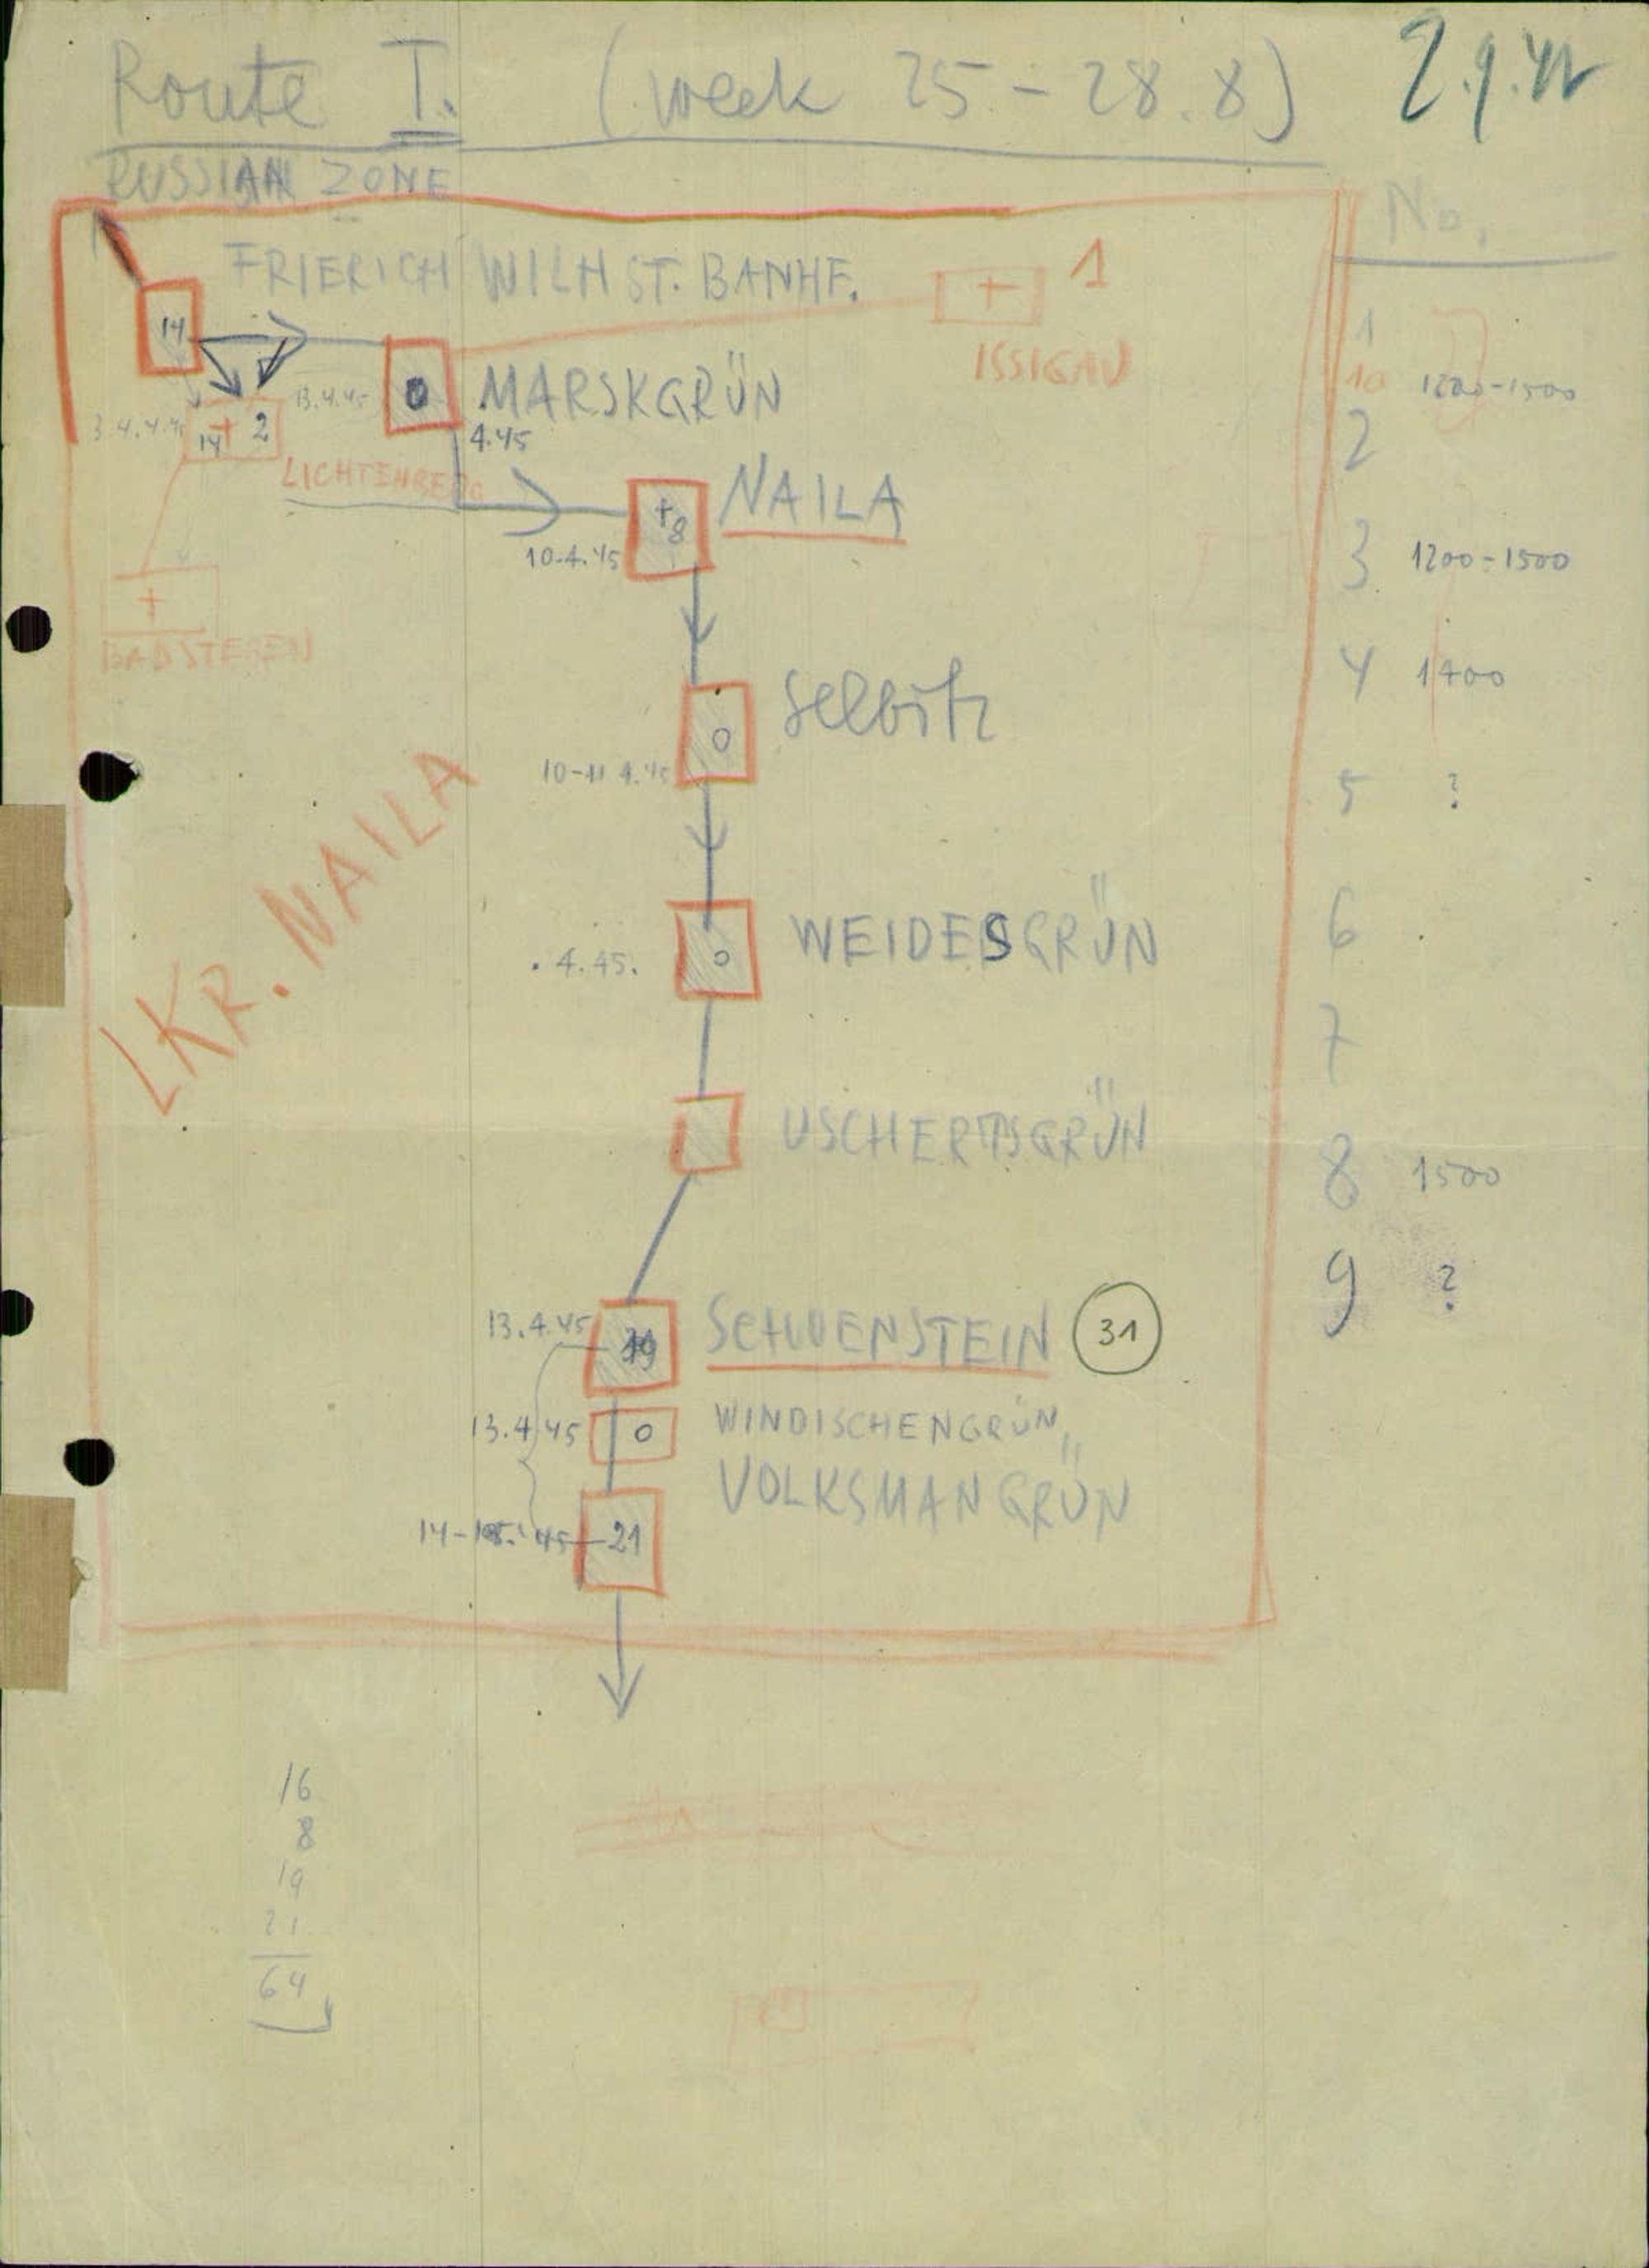 Route I. (week 25-28.8)
RUSSIAN ZONE
No.
FRIERICH WILH ST. BANHF.
+ 1
ISSIGAU
14
1
10 1200-1500
2
13.4.45
0 MARSKGRÜN
4.45
14 + 2
LICHTENBERG
NAILA
+8
10.4.45
3 1200-1500
+
BADSTEBEN
4 1400
Selbitz
0
10-11 4.45
5 ?
LKR. NAILA
6
WEIDESGRÜN
0
. 4.45.
7
USCHERTSGRÜN
8 1500
9 ?
13.4.45
19
SCHUENSTEIN 31
13.4.45 0 WINDISCHENGRÜN
VOLKSMANGRÜN
21
16
8
19
21
64